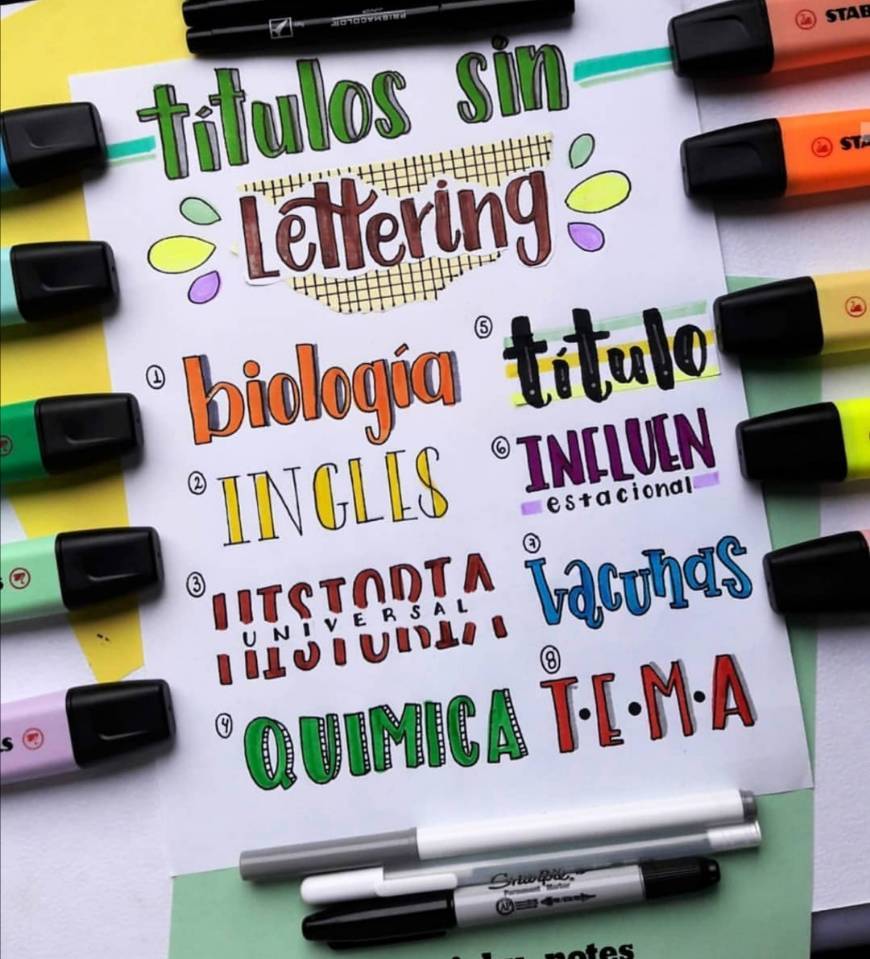 PRISMACOLOR
STAB
STA
títulos sin
Lettering
① biología
② INGLES
③ HISTORIA
UNIVERSAL
④ QUIMICA
⑤ título
⑥ INFLUEN
estacional
⑦ Vacunas
⑧ T.E.M.A
S
Sharpie
Permanent Marker
AP
notes